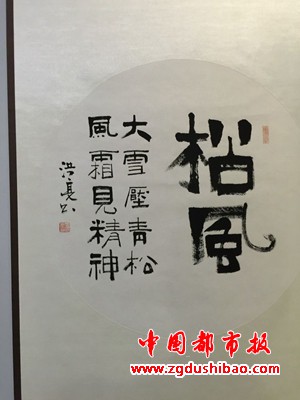 柗風
大雪壓青松
風霜見精神
洪長书
中国都市报
www.zgdushibao.com